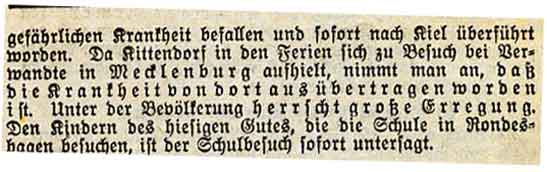 gefährlichen Krankheit befallen und sofort nach Kiel überführt
worden. Da Kittendorf in den Ferien sich zu Besuch bei Ver-
wandte in Mecklenburg aufhielt, nimmt man an, daß
die Krankheit von dort aus übertragen worden
ist. Unter der Bevölkerung herrscht große Erregung.
Den Kindern des hiesigen Gutes, die die Schule in Rondes-
hagen besuchen, ist der Schulbesuch sofort untersagt.